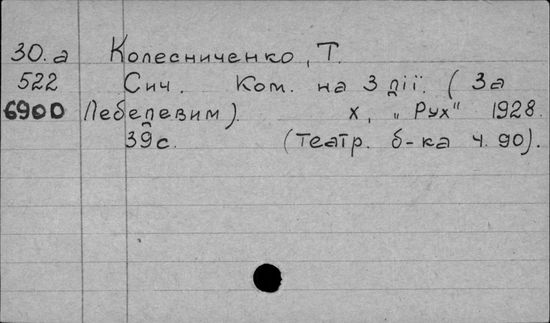 30.а Колесниченко, Т.
522 Сич. Ком. на 3 дії. (За
6900 Лебедевим). Х., „Рух" 1928.
39с. (Театр. б-ка ч. 90).